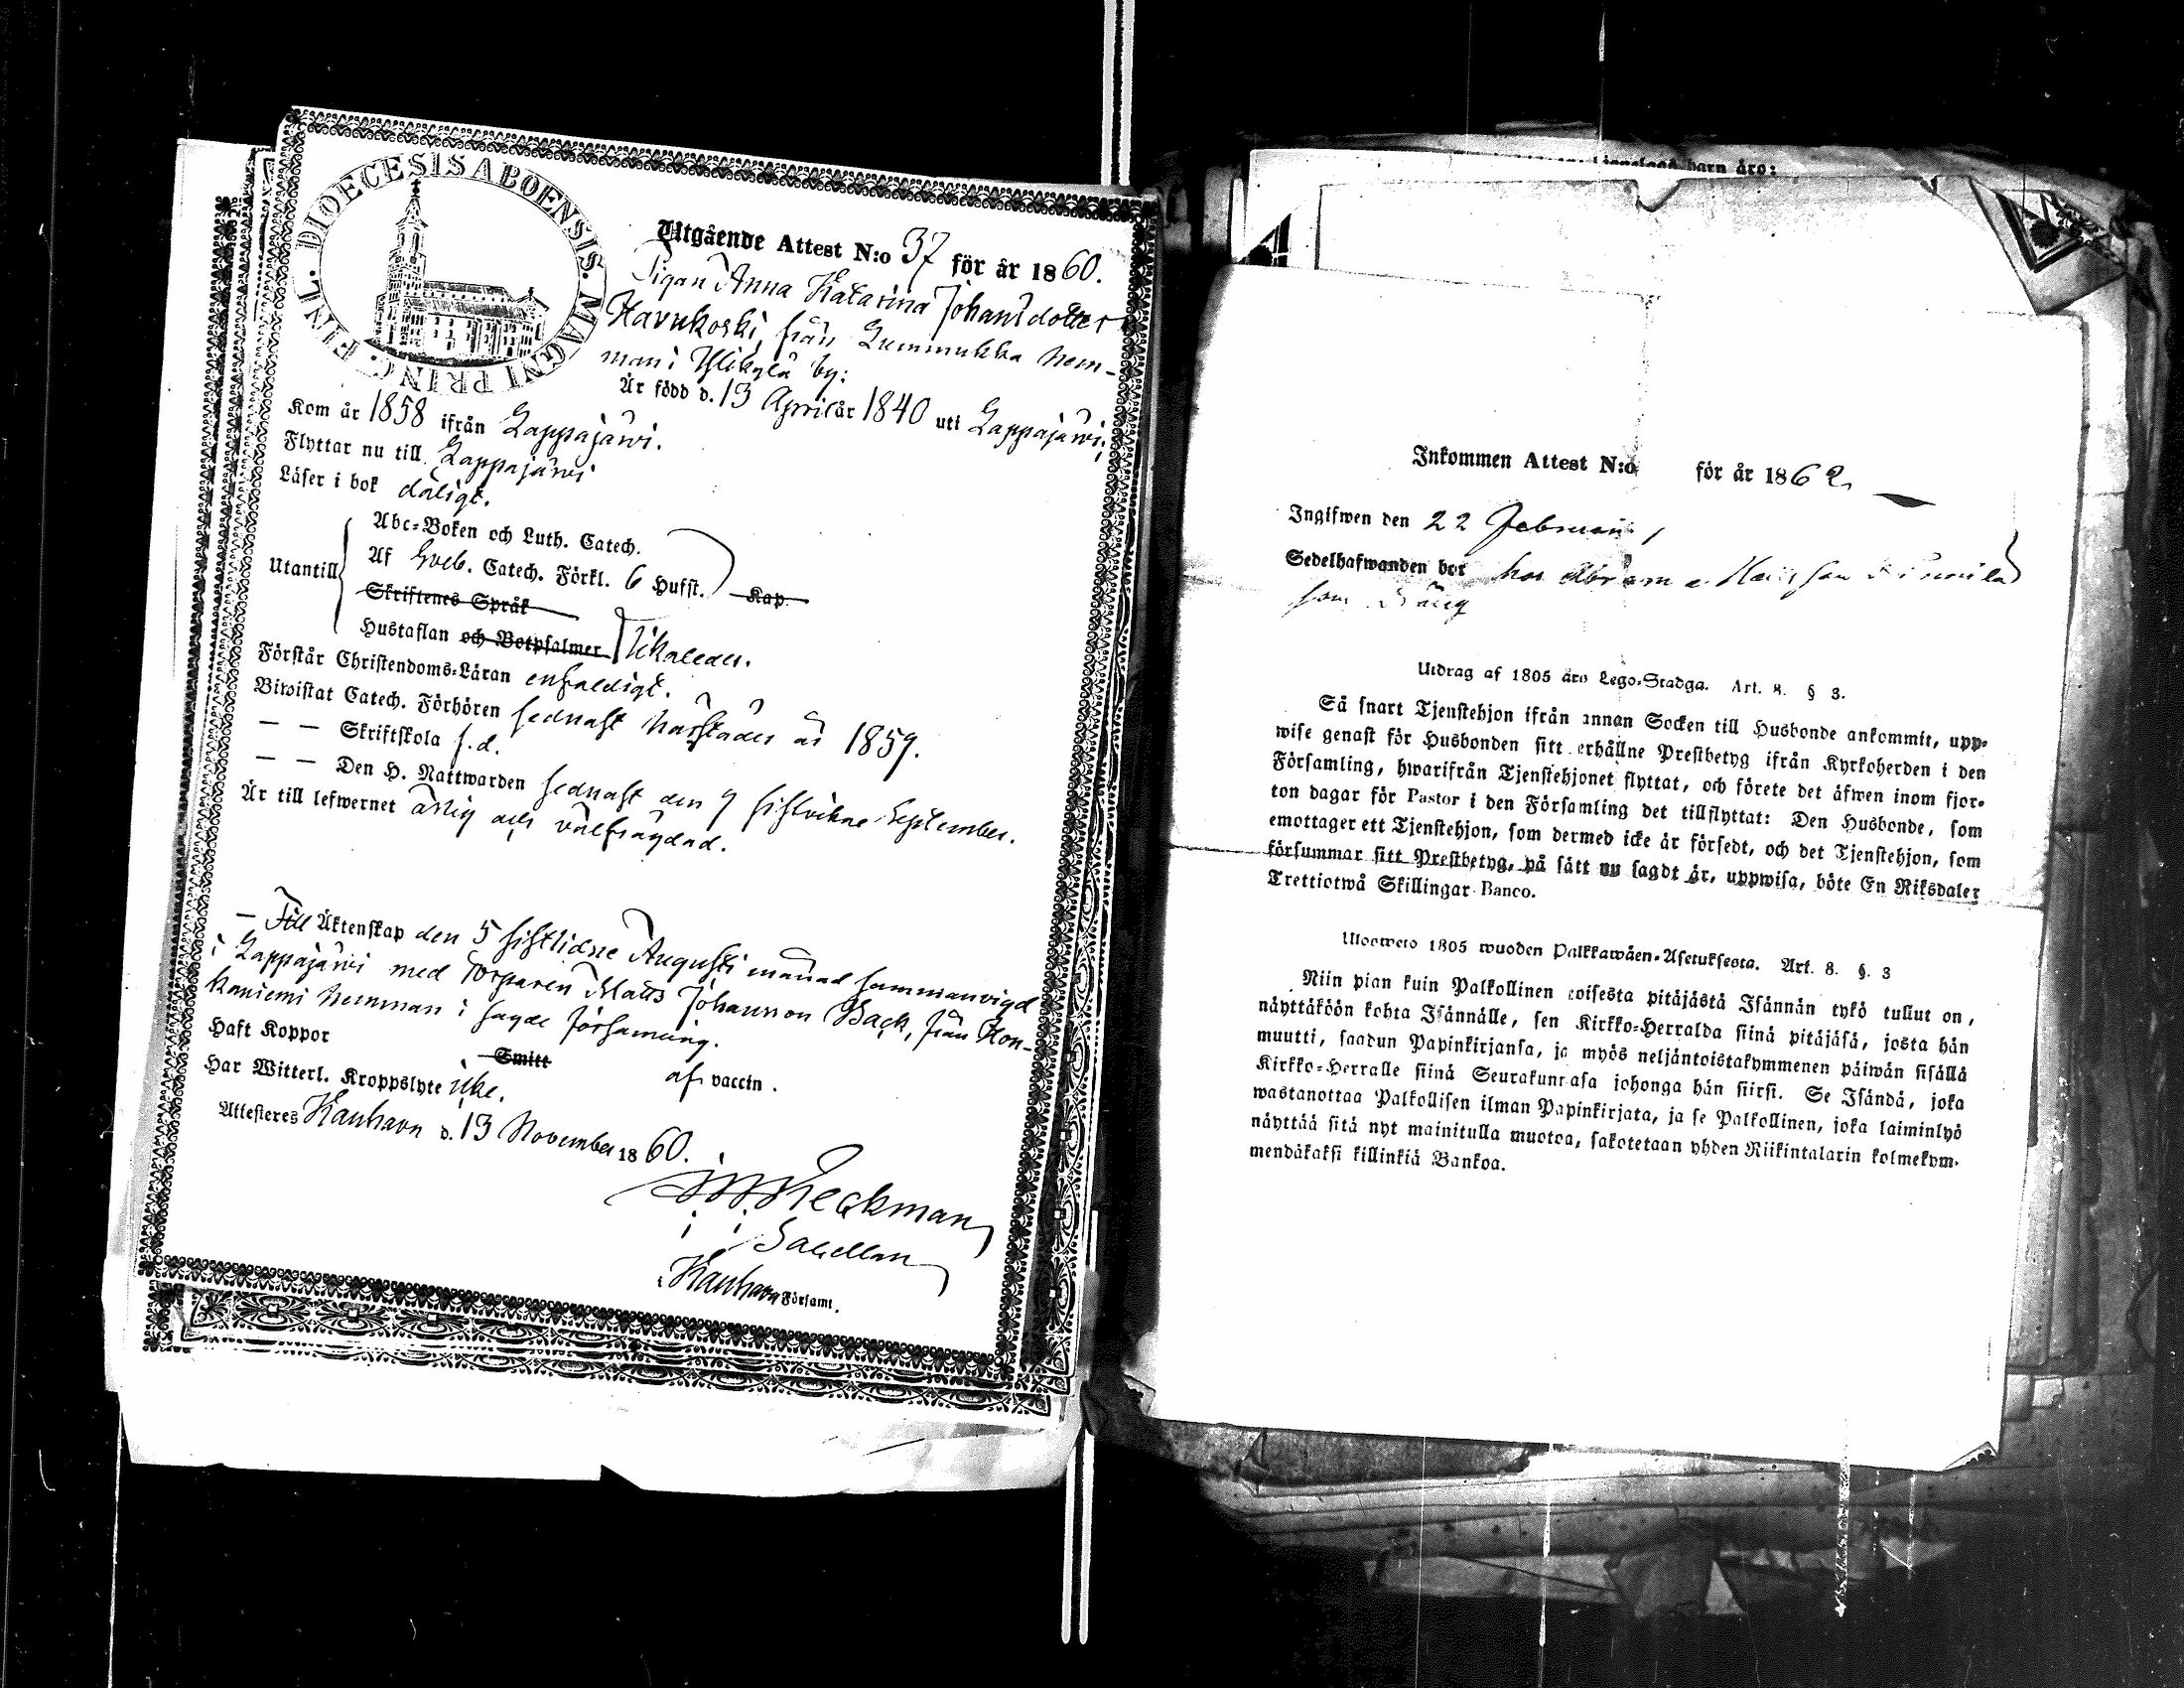 FINL. DIOECESIS ABOENSIS. MAGNI PRINC.
Utgående Attest N:o 37 för år 1860.
Pigan Anna Katarina Johansdotter
Havukoski, från Lummukka hem-
man i Ylikylä by:
Är född d. 13 April år 1840 uti Lappajärvi,
Kom år 1858 ifrån Lappajärvi.
Flyttar nu till Lappajärvi
Läser i bok dåligt.
Utantill
Abc-Boken och Luth. Catech.
Af Sveb. Catech. Förkl. 6 Hufst. Kap.
Skriftenes Språk
Hustaflan och Botpsalmer likaledes.
Förstår Christendoms-Läran enfaldigt.
Biwistat Catech. Förhören sednast härstädes år 1859.
— — Skriftskola s.d.
— — Den H. Nattwarden sednast den 9 sistvikne September.
Är till lefwernet ärlig och välfrägdad.
— Till Äktenskap den 5 sistlidne Augusti månad sammanvigd
i Lappajärvi med Torparen Matts Johansson Back, från Kon-
kaniemi hemman i sagde församling.
Haft Koppor Smitt af vaccin.
Har Witterl. Kroppslyte icke.
Attesteres Kauhava d. 13 November 1860.
Heckman
i
Kauhava Församl.
barn äro:
Inkommen Attest N:o för år 1862,
Ingifwen den 22 Februari,
Sedelhafwanden bor hos
som
Utdrag af 1805 års Lego-Stadga. Art. 8. § 3.
Så snart Tjenstehjon ifrån annan Socken till Husbonde ankommit, upp-
wise genast för Husbonden sitt erhållne Prestbetyg ifrån Kyrkoherden i den
Församling, hwarifrån Tjenstehjonet flyttat, och förete det äfwen inom fjor-
ton dagar för Pastor i den Församling det tillflyttat: Den Husbonde, som
emottager ett Tjenstehjon, som dermed icke är försedt, och det Tjenstehjon, som
försummar sitt Prestbetyg, på sätt nu sagdt är, uppwisa, böte En Riksdaler
Trettiotwå Skillingar Banco.
Uloswelo 1805 wuoden Palkkawäen-Asetuksesta. Art. 8. §. 3
Niin pian kuin Palkollinen toisesta pitäjästä Isännän tykö tullut on,
näyttäköön kohta Isännälle, sen Kirkko-Herralda siinä pitäjäsä, josta hän
muutti, saadun Papinkirjansa, ja myös neljäntoistakymmenen päiwän sisällä
Kirkko-Herralle siinä Seurakunnasa johonga hän siirsi. Se Isändä, joka
wastanottaa Palkollisen ilman Papinkirjata, ja se Palkollinen, joka laiminlyö
näyttää sitä nyt mainitulla muotoa, sakotetaan yhden Riikintalarin kolmekym-
mendäkaksi killinkiä Bankoa.